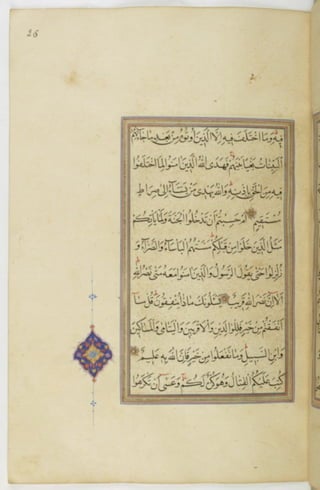 26
فيه وما اختلف فيه الا الذين اوتوه من بعد ما جاءتهم
البينات بغيا بينهم فهدى الله الذين آمنوا لما اختلفوا
فيه من الحق باذنه والله يهدي من يشاء الى صراط
مستقيم ام حسبتم ان تدخلوا الجنة ولما يأتكم
مثل الذين خلوا من قبلكم مستهم البأساء والضراء و
زلزلوا حتى يقول الرسول والذين آمنوا معه متى نصر الله
الا ان نصر الله قريب يسئلونك ماذا ينفقون قل ما
انفقتم من خير فللوالدين والاقربين واليتامى والمساكين
وابن السبيل وما تفعلوا من خير فان الله به عليم
كتب عليكم القتال وهو كره لكم وعسى ان تكرهوا